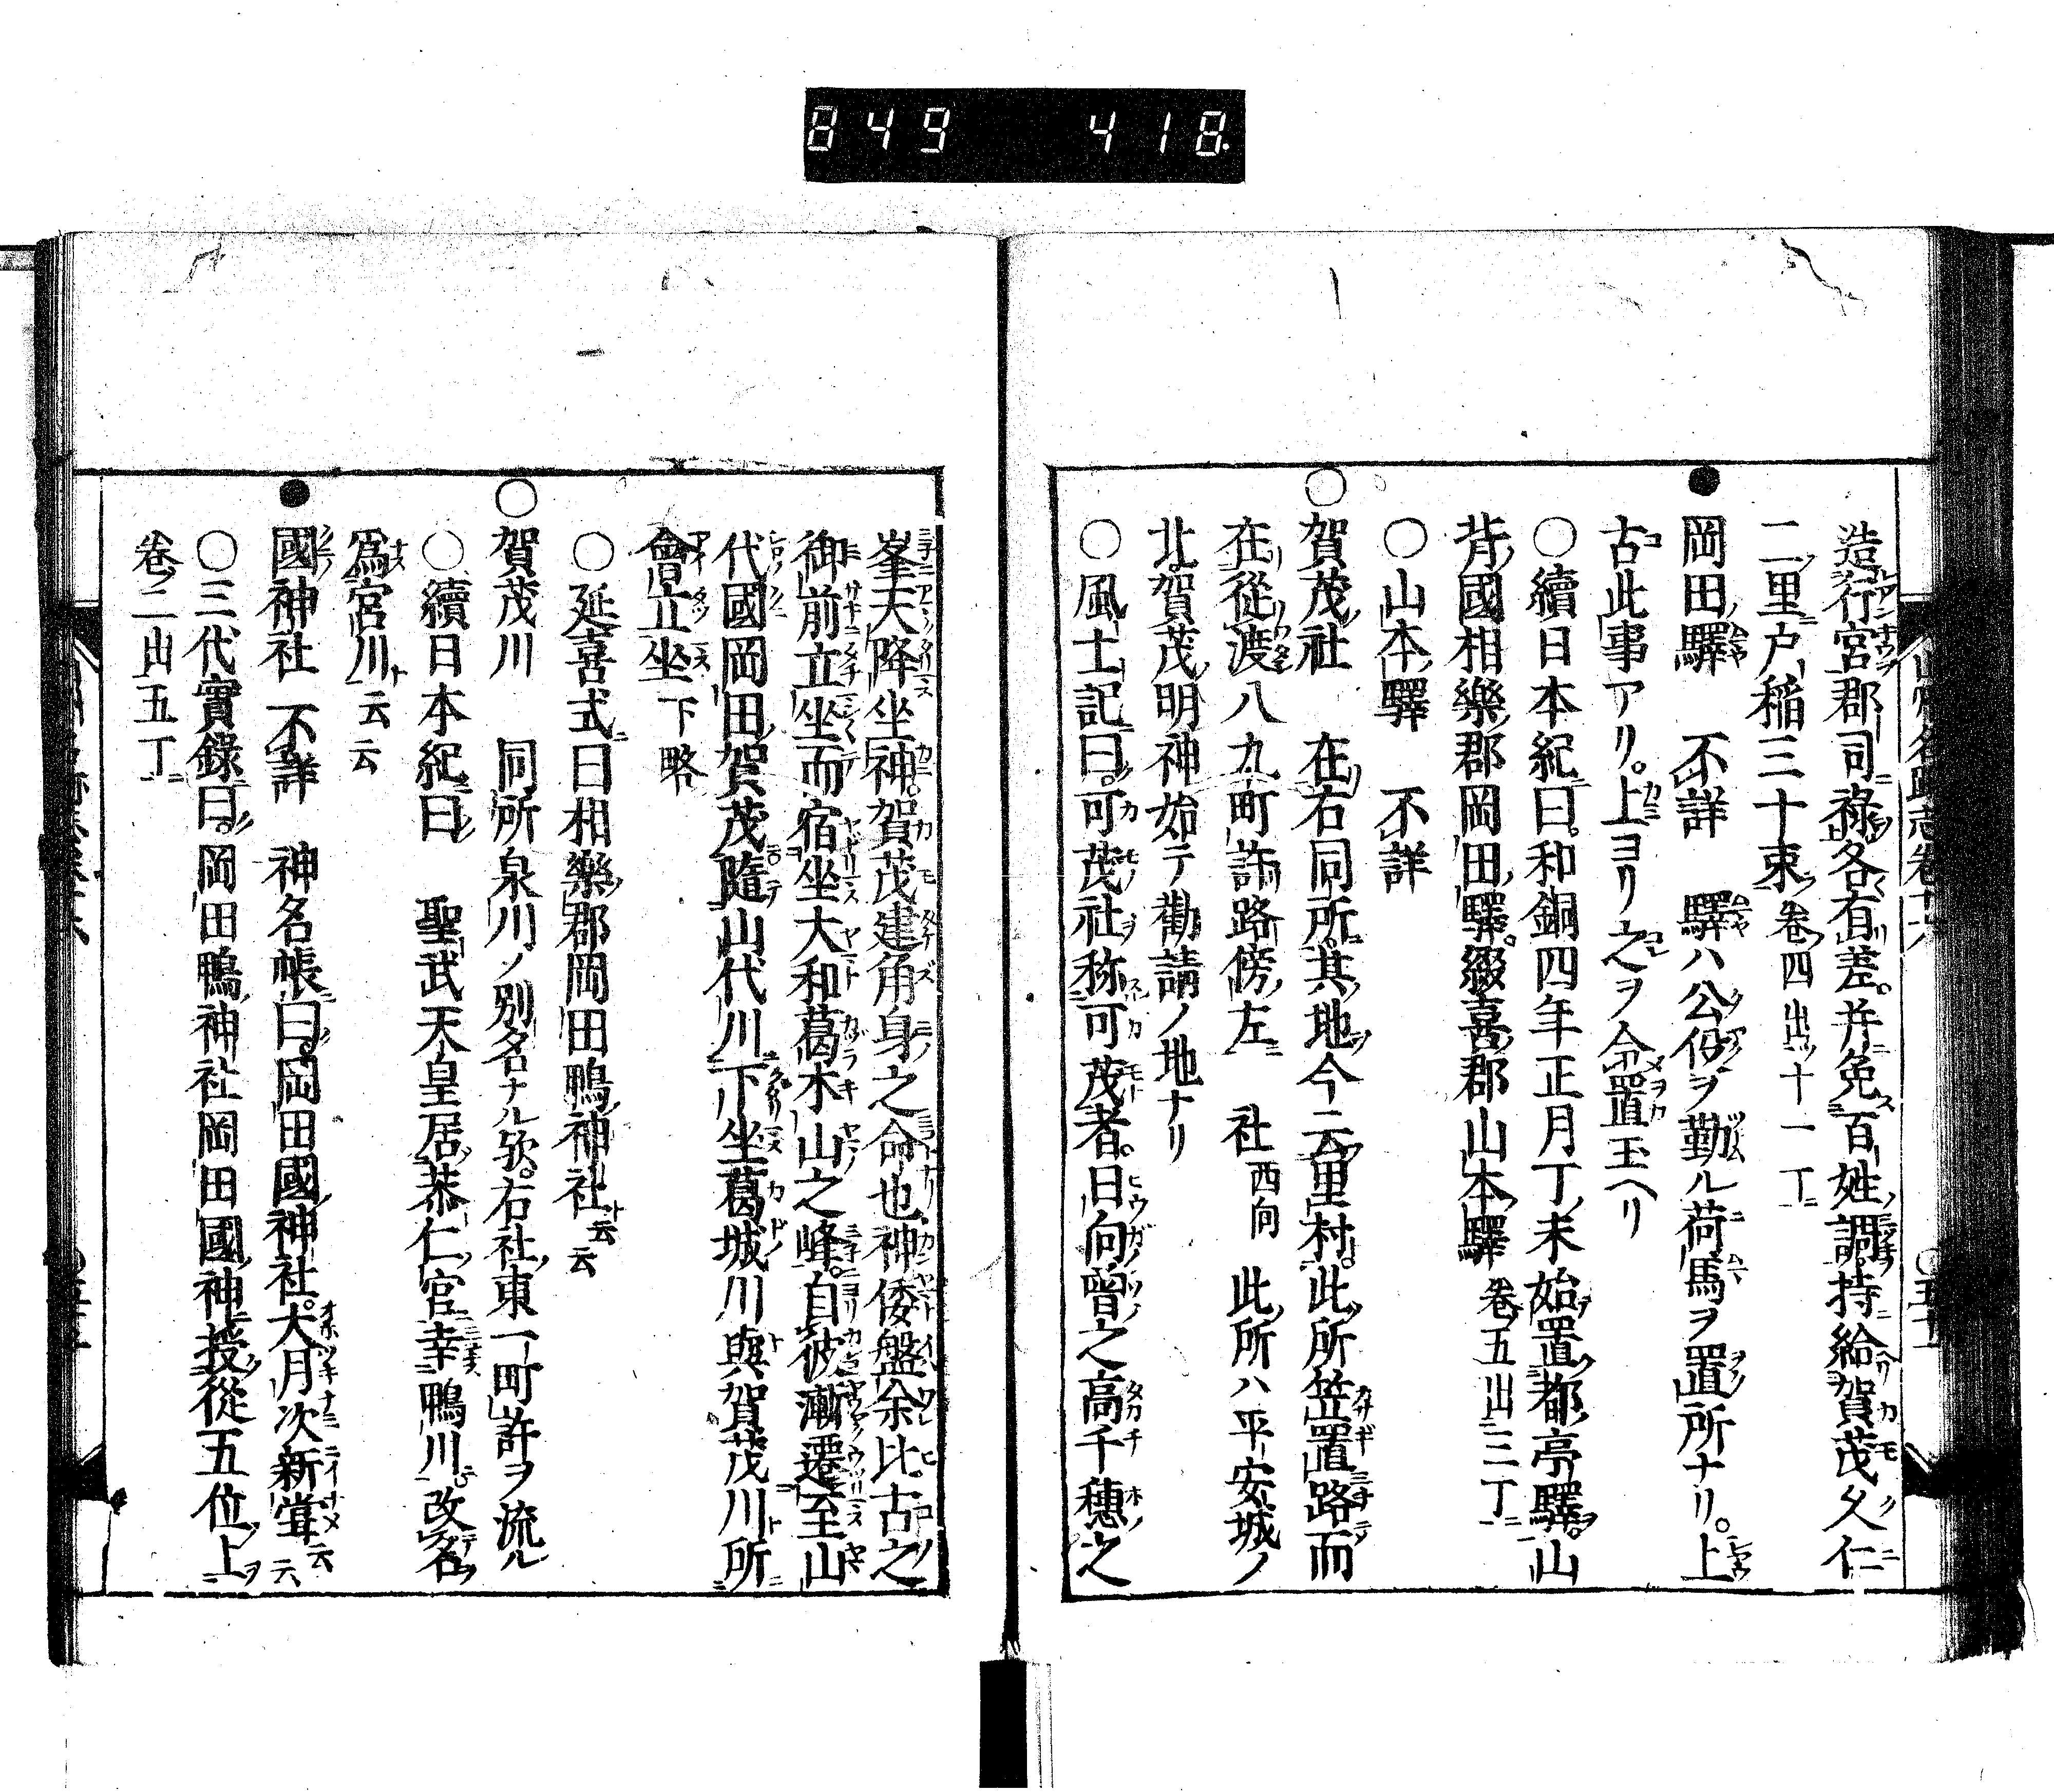 849 418
造行宮郡司祿各有差。幷免百姓調。持給賀茂久仁
二里戸稲三十束 卷四出十一丁
●岡田驛 不詳 驛ハ公役ヲ勤ル荷馬ヲ置所ナリ。上
古此事アリ。上ヨリ之ヲ令置玉ヘリ
○續日本紀曰。和銅四年正月丁未始置都亭驛。山
背國相樂郡岡田驛。綴喜郡山本驛 卷五出三丁
○山本驛 不詳
○賀茂社 在右同所。其地今云里村。此所笠置路而
在從渡八九町許路傍左 社 西向 此所ハ平安城ノ
北賀茂明神始テ勸請ノ地ナリ
○風土記曰。可茂社称可茂者。日向曾之高千穗之
峯天降坐神。賀茂建角身之命也神倭盤余比古之
御前立坐而宿坐大和葛木山之峰。自彼漸遷至山
代國岡田賀茂隨山代川下坐葛城川與賀茂川所
會立坐 下略
○延喜式曰相樂郡岡田鴨神社云云
○賀茂川 同所泉川ノ別名ナル欤。右社東一町許ヲ流ル
○續日本紀曰 聖武天皇居恭仁宮幸鴨川。改名
爲宮川云云
●國神社 不詳 神名帳曰。岡田國神社。大月次新甞云云
○三代實錄曰。岡田鴨神社岡田國神授從五位上
卷二出五丁